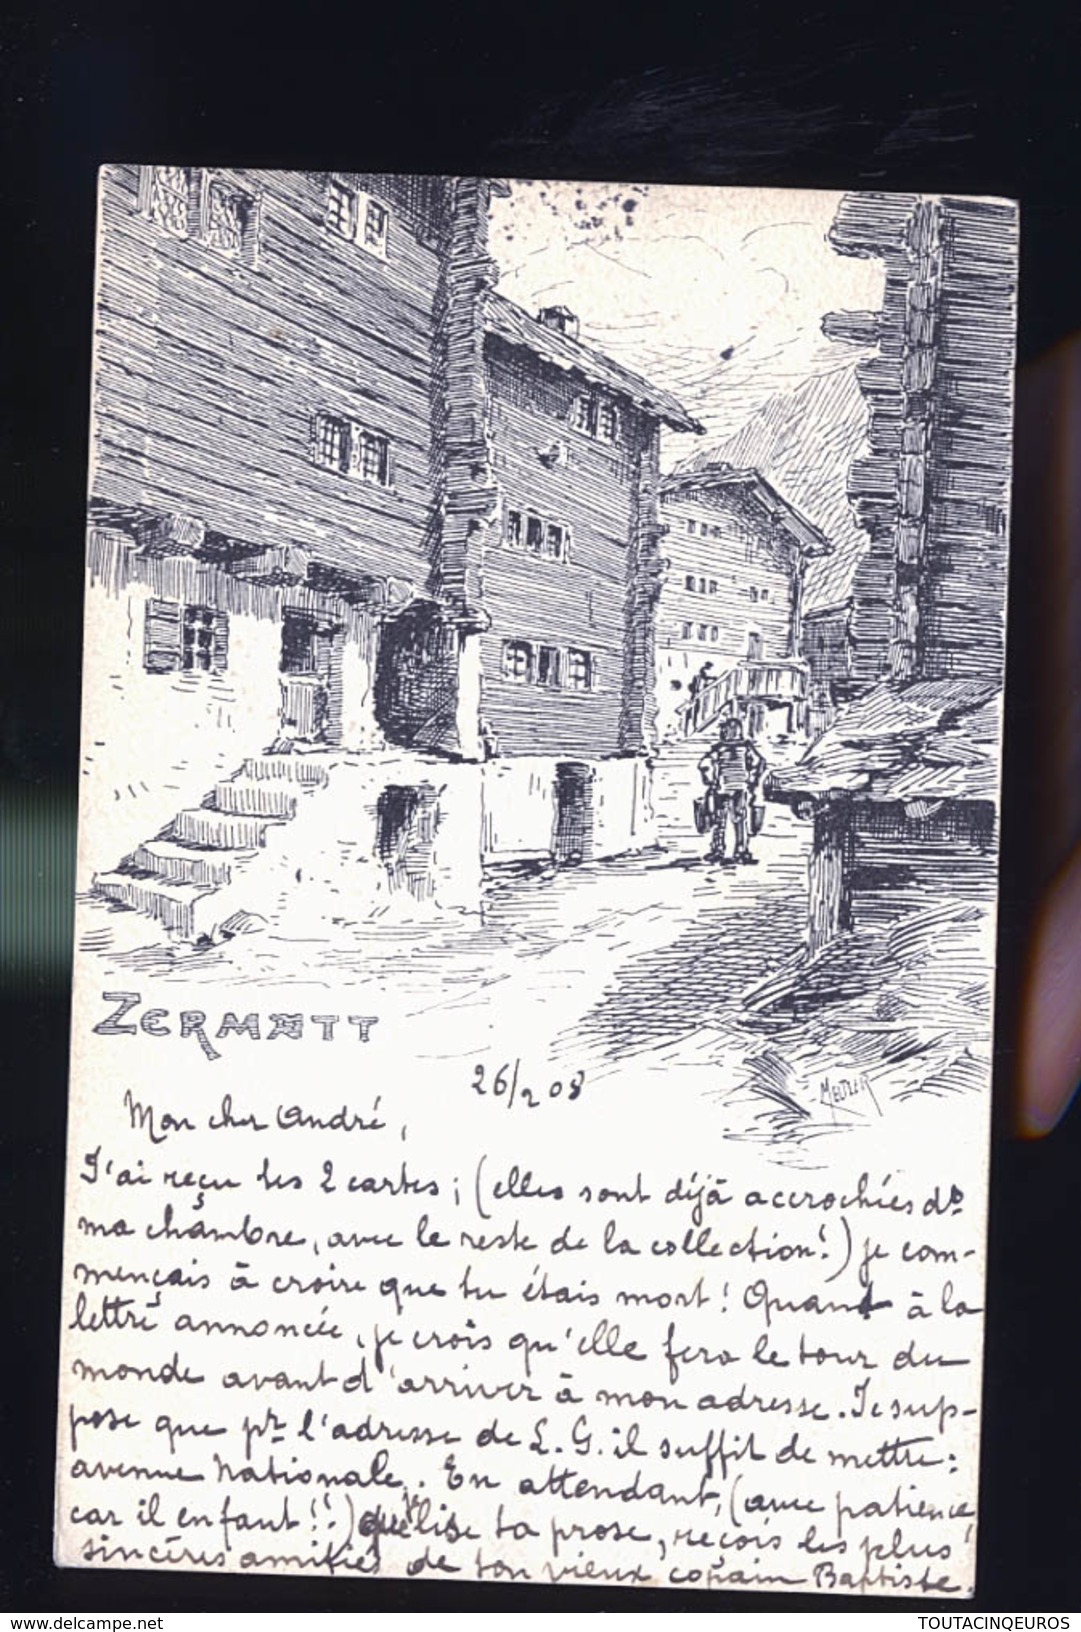 ZERMATT
MEUTER
26/2 08
Mon cher André,
J'ai reçu tes 2 cartes; (elles sont déjà accrochées ds
ma chambre, avec le reste de la collection!) je com-
mençais à croire que tu étais mort! Quant à la
lettre annoncée, je crois qu'elle fera le tour du
monde avant d'arriver à mon adresse. Je sup-
pose que pr l'adresse de L. G. il suffit de mettre:
avenue Nationale. En attendant, (avec patience
car il en faut!!) que je lise ta prose, reçois les plus
sincères amitiés de ton vieux copain Baptiste.
www.delcampe.net
TOUTACINQEUROS